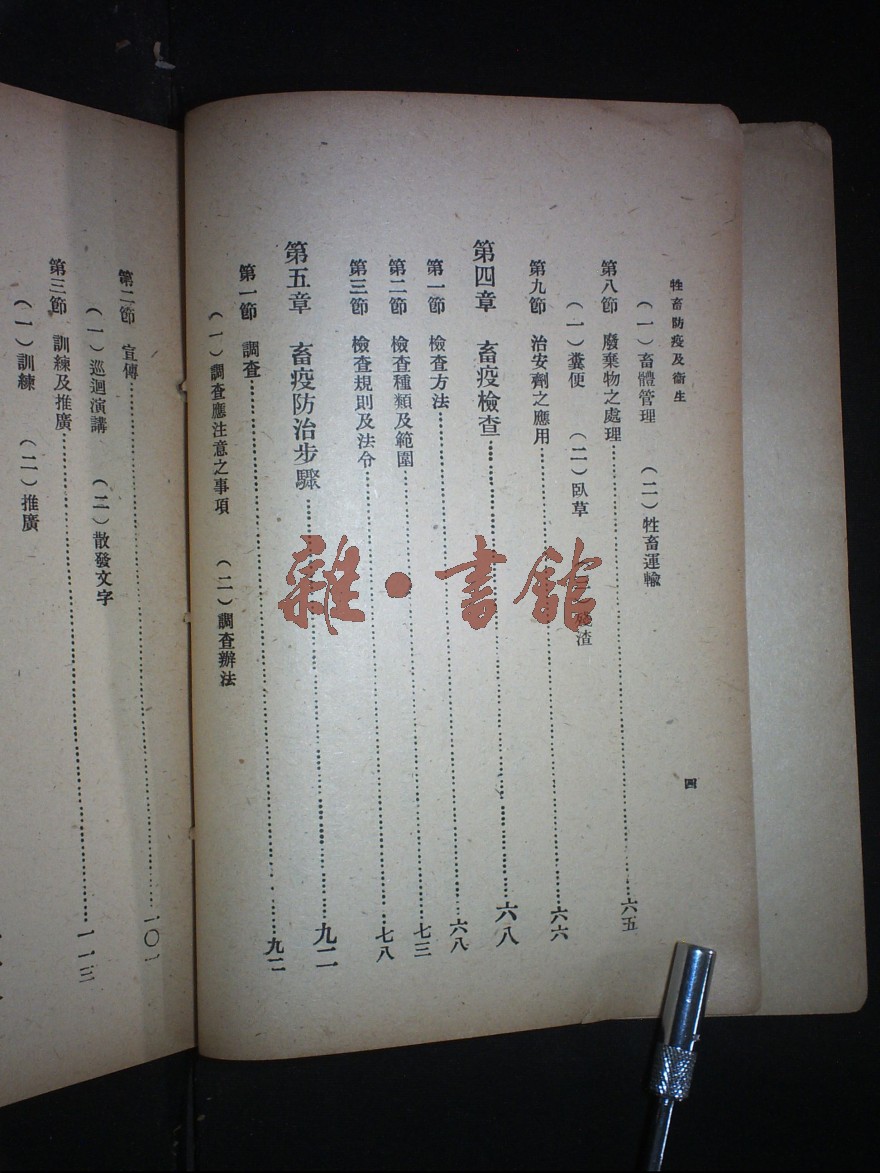 牲畜防疫及衞生
四
(一)畜體管理 (二)牲畜運輸
第八節 廢棄物之處理……六五
(一)糞便 (二)臥草 渣
第九節 治安劑之應用……六六
第四章 畜疫檢查……六八
第一節 檢查方法……六八
第二節 檢查種類及範圍……七三
第三節 檢查規則及法令……七八
第五章 畜疫防治步驟……九二
第一節 調查……九二
(一)調查應注意之事項 (二)調查辦法
第二節 宣傳……一〇一
(一)巡迴演講 (二)散發文字
第三節 訓練及推廣……一一三
(一)訓練 (二)推廣
雜·書館